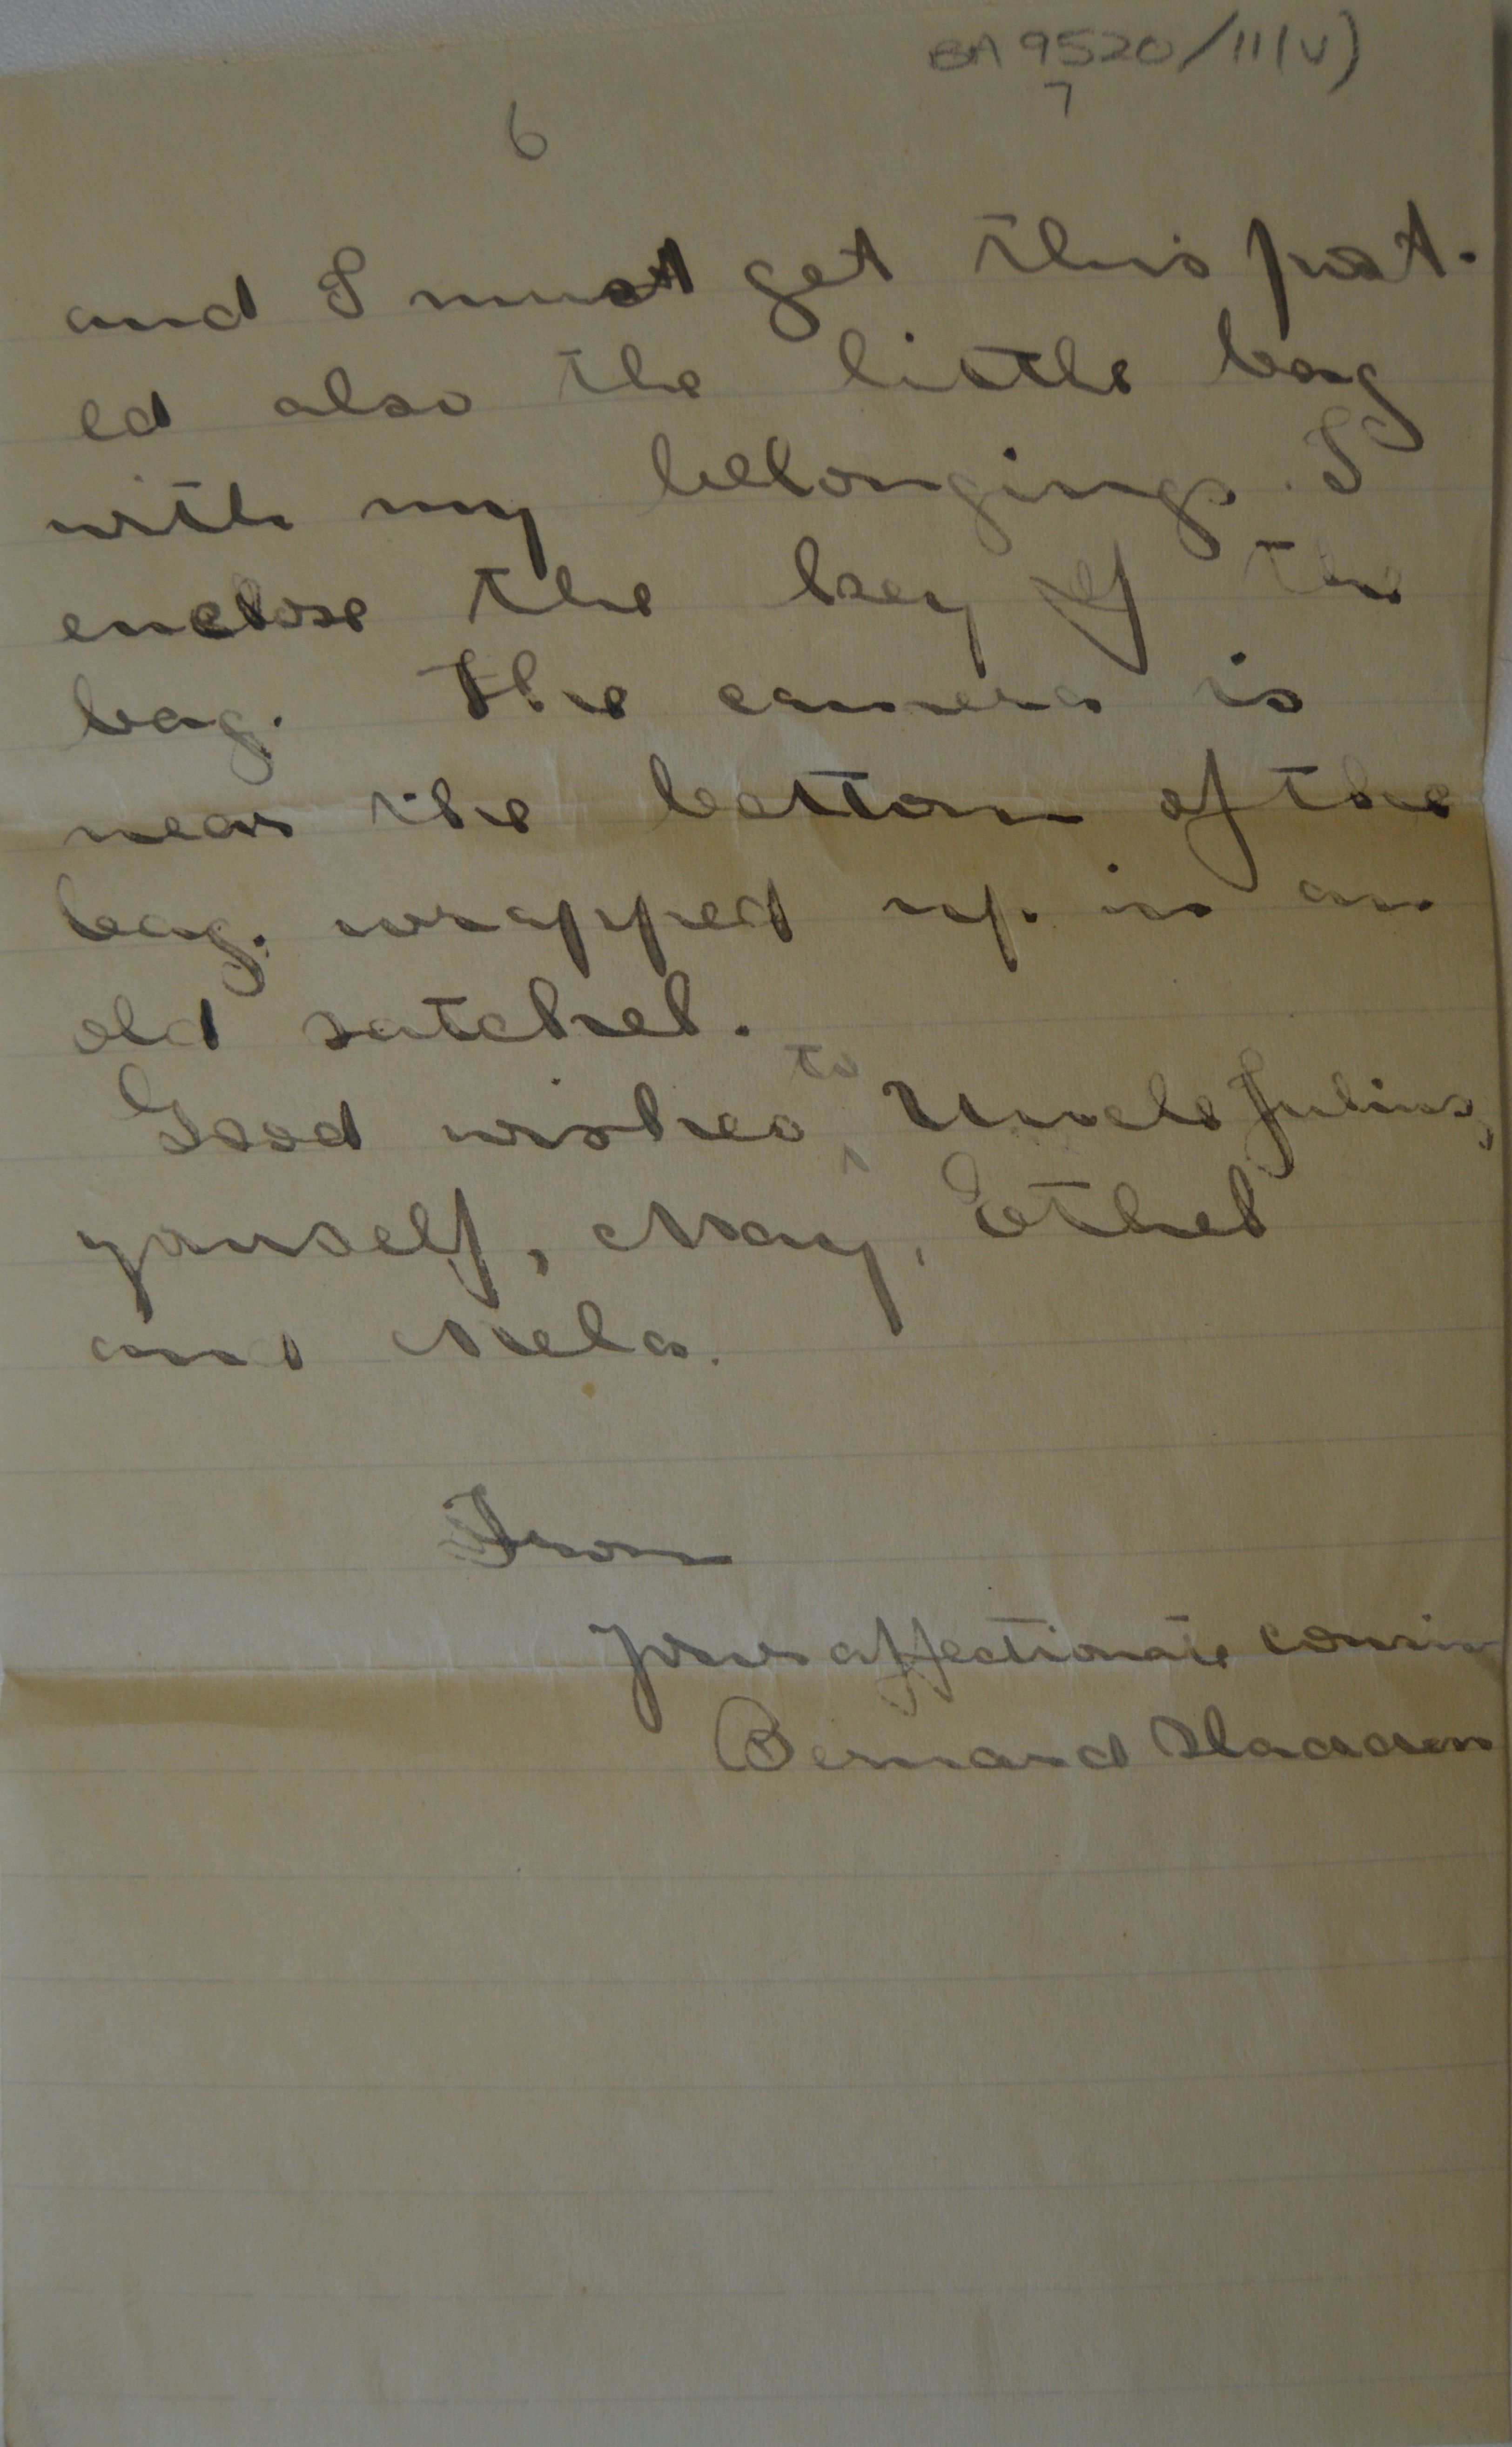 BA 9520/11(V)
7
6
and I must get this post-
ed also the little bag
with my belongings. I
enclose the key of the
bag. The camera is
near the bottom of the
bag. wrapped up. in an
old satchel.
Good wishes to Uncle Julius,
yourself, May, Ethel
and Nela.
From
your affectionate cousin
Bernard